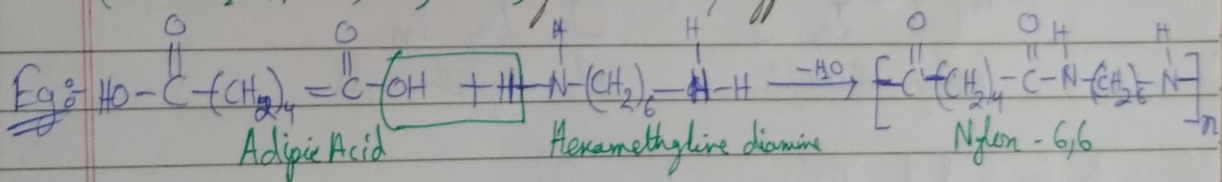 O O H H O O H H
Eg:- HO-C-(CH2)4=C-OH + H-N-(CH2)6-N-H -H2O→ [-C-(CH2)4-C-N-(CH2)6-N-]n
Adipic Acid Hexamethyline diamine Nylon-6,6